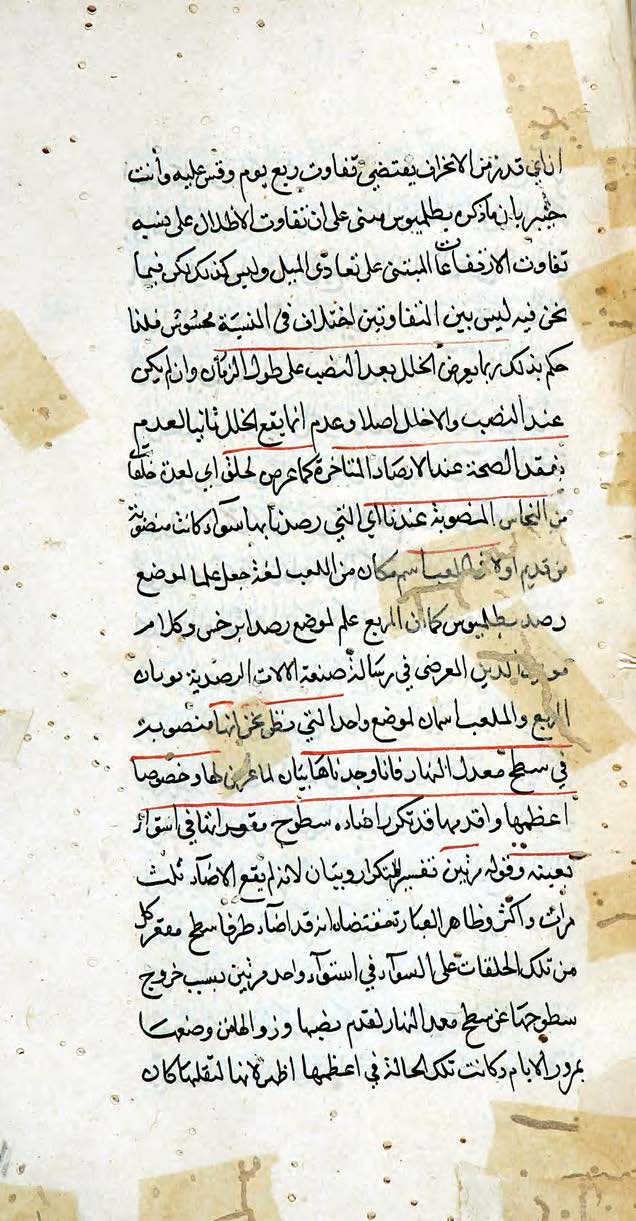 ان اي قدر من الانحراف يقتضي تفاوت ربع يوم وقس عليه وأنت
خبير بان ماذكره بطلميوس مبنى على ان تفاوت الاظلال على نسبه
تفاوت الارتفاعات المبتنى على تعادى الميل وليس كذلك لكن فيما
نحن فيه ليس بين المتفاوتين اختلاف في النسبة محسوس فلذا
حكم بذلك ربما يعرض الخلل بعد النصب على طول الزمان وان لم يكن
عند النصب والا خلل اصلا وعدم انما يقع الخلل ثانيا لعدم
تفقد الصحة عند الارصاد المتاخرة كما عرض لحلق اي لعدة حلقات
من النحاس المنصوبة عندنا اي التي رصدنا بها سواء كانت منصوبة
من قديم اولا في الملعب اسم مكان من اللعب لغة جعل علما لموضع
رصد بطلميوس كما ان المربع علم لموضع رصد ابرخس وكلام
الدين العرضى في رسالة صنعة الالات الرصدية
المربع والملعب اسمان لموضع واحد التي نظن نحن انها منصوبة
في سطح معدل النهار فانا وجدناها بيان لما عرض لها وخصوصا
اعظمها واقدمها قد تكرر اضاءه سطوح مقعراتها في استواء
بعينه وقوله مرتين تفسير للتكرار وبيان لانه لم يقع الاضاءة ثلث
مرات واكثر وظاهر العبارة مقتضاه انه قد اضاء طرفا سطح مقعر كل
من تلك الحلقات على السواء في استواء واحد مرتين بسبب خروج
سطوحها عن سطح معدل النهار لقدم نصبها وزوالها من وضعها
بمرور الايام وكانت تلك الحالة في اعظمها اظهر لانها لثقلها كان